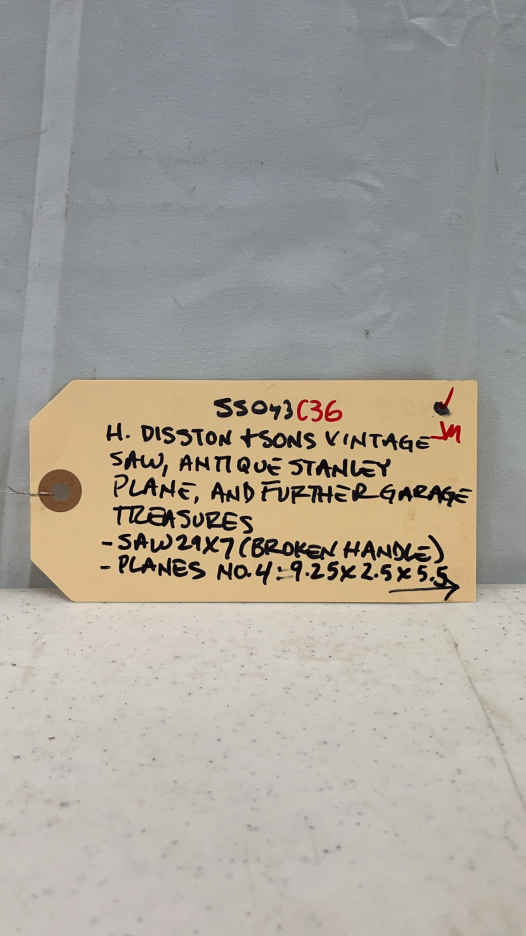 SS043C36
H. DISSTON + SONS VINTAGE
SAW, ANTIQUE STANLEY
PLANE, AND FURTHER GARAGE
TREASURES
- SAW 29X7 (BROKEN HANDLE)
- PLANES NO.4 = 9.25 X 2.5 X 5.5